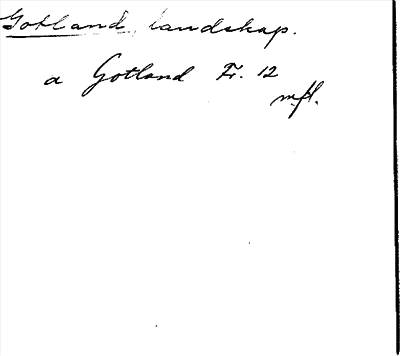 Gotland, landskap.
a Gotland Fr. 12
mfl.